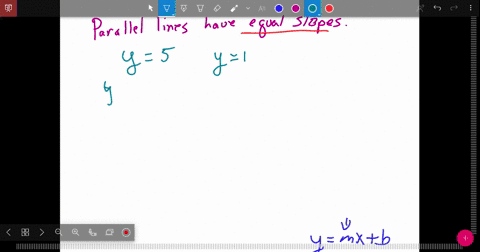 Parallel lines have equal slopes.
y = 5 y = 1
y
y = mx + b